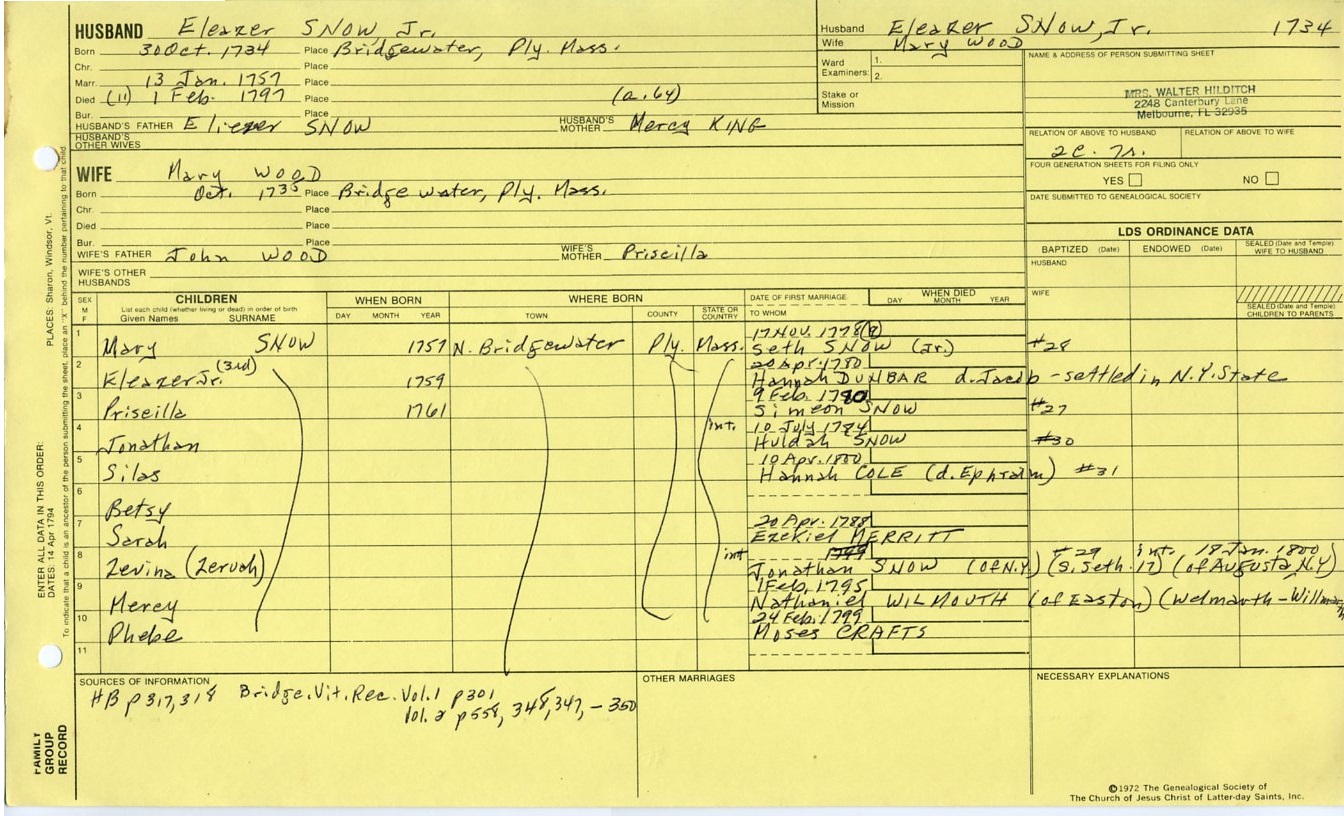 HUSBAND Eleazer SNOW Jr.
Born 30 Oct. 1734 Place Bridgewater, Ply. Mass.
Chr. Place
Marr. 13 Jan. 1757 Place
Died (11) 1 Feb. 1797 Place (a. 64)
Bur. Place
HUSBAND'S FATHER Eliezer SNOW HUSBAND'S MOTHER Mercy KING
HUSBAND'S OTHER WIVES
WIFE Mary WOOD
Born Oct. 1735 Place Bridgewater, Ply. Mass.
Chr. Place
Died Place
Bur. Place
WIFE'S FATHER John WOOD WIFE'S MOTHER Priscilla
WIFE'S OTHER HUSBANDS
Husband Eleazer SNOW, Jr. 1734
Wife Mary WOOD
Ward Examiners: 1.
2.
Stake or Mission
NAME & ADDRESS OF PERSON SUBMITTING SHEET
MRS. WALTER HILDITCH
2248 Canterbury Lane
Melbourne, FL 32935
RELATION OF ABOVE TO HUSBAND RELATION OF ABOVE TO WIFE
2c. 7r.
FOUR GENERATION SHEETS FOR FILING ONLY
YES NO
DATE SUBMITTED TO GENEALOGICAL SOCIETY
LDS ORDINANCE DATA
BAPTIZED (Date) ENDOWED (Date) SEALED (Date and Temple) WIFE TO HUSBAND
HUSBAND
WIFE
SEALED (Date and Temple) CHILDREN TO PARENTS
SEX M F
CHILDREN
List each child (whether living or dead) in order of birth
Given Names SURNAME
WHEN BORN
DAY MONTH YEAR
WHERE BORN
TOWN COUNTY STATE OR COUNTRY
DATE OF FIRST MARRIAGE
TO WHOM
WHEN DIED
DAY MONTH YEAR
1 Mary SNOW 1757 N. Bridgewater Ply. Mass. 17 Nov. 1778(9)
Seth SNOW (Jr.) #28
2 Eleazer Jr. (3rd) 1759 20 Apr. 1780
Hannah DUNBAR d. Jacob - settled in N.Y. State
3 Priscilla 1761 9 Feb. 1780
Simeon SNOW #27
4 Jonathan int. 10 July 1784
Huldah SNOW #30
5 Silas 10 Apr. 1800
Hannah COLE (d. Ephraim) #31
6 Betsy
7 Sarah 20 Apr. 1788
Ezekiel MERRITT
8 Zevina (Zeruah) int 1799 #29 int. 18 Jan. 1800
Jonathan SNOW (of N.Y.) (S. Seth-17) (of Augusta, N.Y)
9 Mercy 1 Feb. 1795
Nathaniel WILMOUTH (of Easton) (Welmarth-
10 Phebe 24 Feb. 1799
Moses CRAFTS
11
SOURCES OF INFORMATION
HB p 317, 318 Bridge. Vit. Rec. Vol. 1 p 301
Vol. 2 p 558, 348, 347, - 350
OTHER MARRIAGES
NECESSARY EXPLANATIONS
©1972 The Genealogical Society of
The Church of Jesus Christ of Latter-day Saints, Inc.
PLACES: Sharon, Windsor, Vt.
ENTER ALL DATA IN THIS ORDER:
DATES: 14 Apr 1794
To indicate that a child is an ancestor of the person submitting the sheet, place an "X" behind the number pertaining to that child
FAMILY
GROUP
RECORD